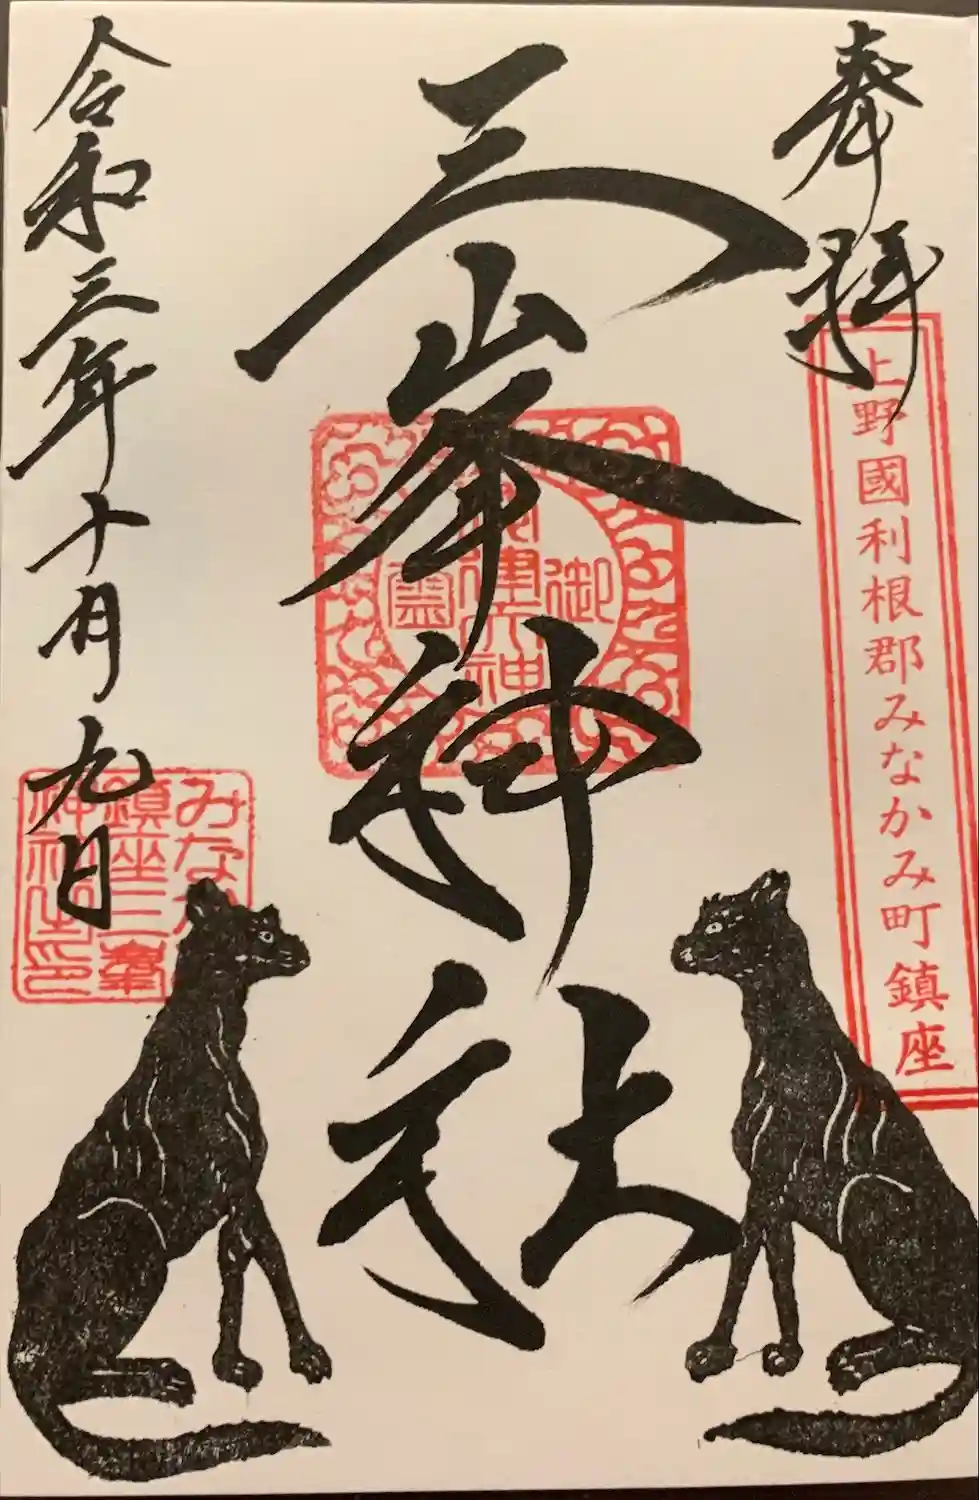 奉拝
上野國利根郡みなかみ町鎮座
三峯神社
御
神
霊
令和三年十月九日
みなか
鎮座三峯
神社之印